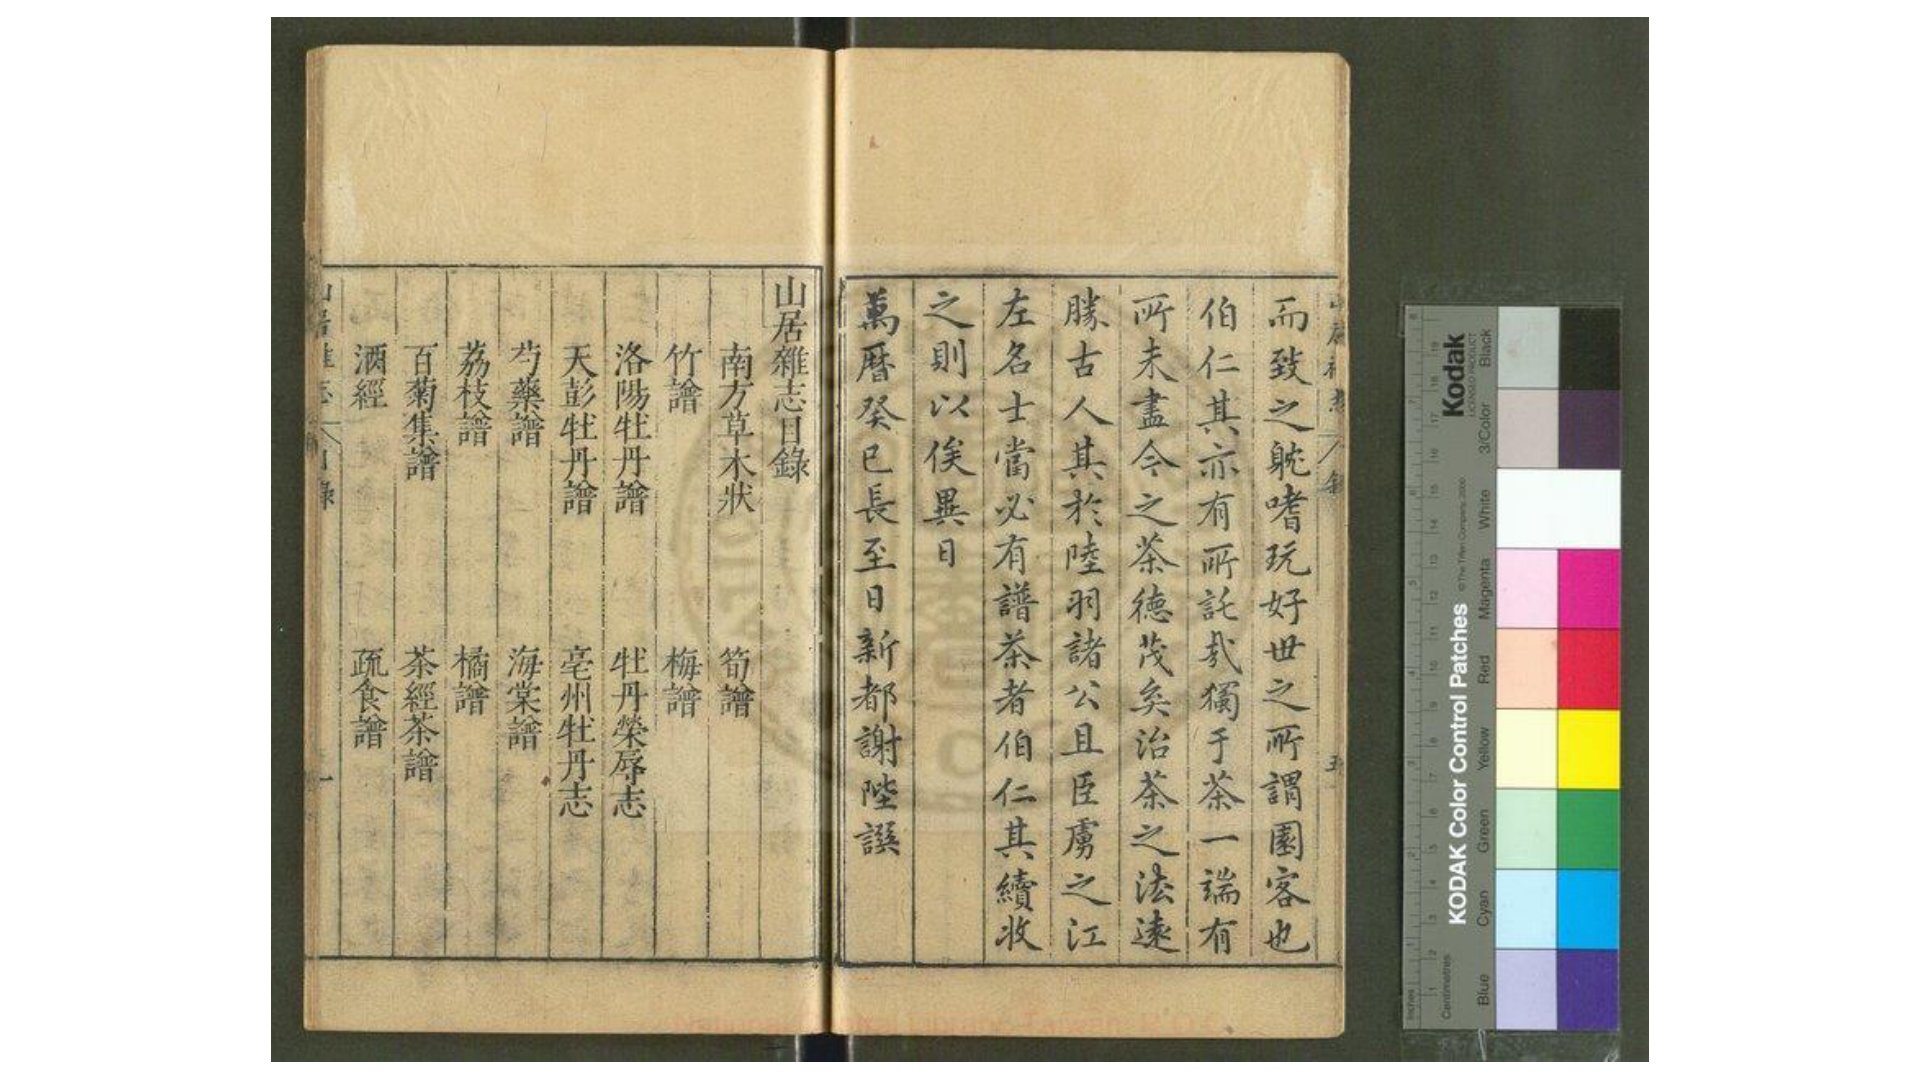 而致之躭嗜玩好世之所謂園客也
伯仁其亦有所託哉獨于茶一端有
所未盡今之茶德茂矣治茶之法遠
勝古人其於陸羽諸公且臣虜之江
左名士當必有譜茶者伯仁其續收
之則以俟異日
萬曆癸巳長至日新都謝陛譔
山居雜志目錄
南方草木狀 筍譜
竹譜 梅譜
洛陽牡丹譜 牡丹榮辱志
天彭牡丹譜 亳州牡丹志
芍藥譜 海棠譜
荔枝譜 橘譜
百菊集譜 茶經茶譜
酒經 疏食譜
山居雜志 目錄 一
Kodak
LICENSED PRODUCT
KODAK Color Control Patches
©The Tiffen Company, 2000
Blue Cyan Green Yellow Red Magenta White 3/Color Black
Inches
Centimetres